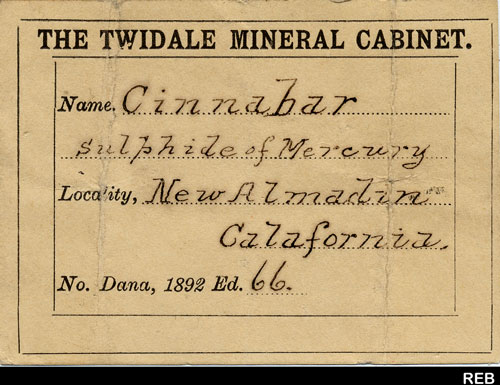 THE TWIDALE MINERAL CABINET.
Name. Cinnabar
Sulphide of Mercury
Locality, New Almadin
Calafornia.
No. Dana, 1892 Ed. 66.
REB